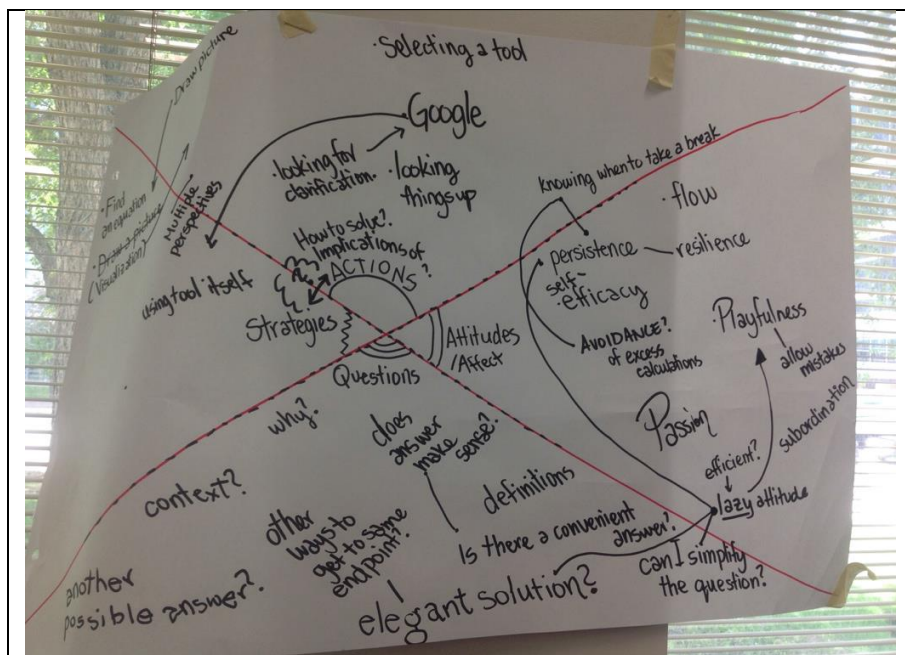 · Selecting a tool
Draw picture
Google
· looking for
clarification.
· looking
things up
· Find
an equation
· Draw a picture
(Visualization)
Multiple
perspectives
using tool itself
How to solve?
Implications of
ACTIONS?
Strategies
Questions
Attitudes
/Affect
knowing when to take a break
· flow
persistence
resilience
self-
· efficacy
AVOIDANCE?
of excess
calculations
· Playfulness
allow
mistakes
subordination
Passion
efficient?
lazy attitude
why?
does
answer
make
sense?
context?
definitions
other
ways to
get to same
endpoint?
Is there a convenient
answer?
can I simplify
the question?
another
possible answer?
elegant solution?